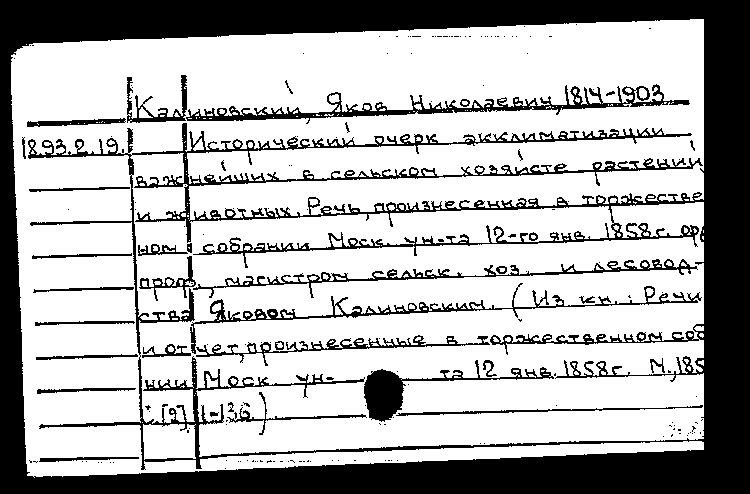 Калиновский, Яков Николаевич, 1814-1903
1893.2.19. Исторический очерк акклиматизации
важнейших в сельском хозяйсте растений
и животных. Речь, произнесенная в торжестве
ном собрании Моск. ун-та 12-го янв. 1858 г. орд
проф., магистром сельск. хоз. и лесовод-
ства Яковом Калиновским. (Из кн.: Речи
и отчет, произнесенные в торжественном соб
нии Моск. ун-та 12 янв. 1858 г. М., 185
С. [2], 1-136.)